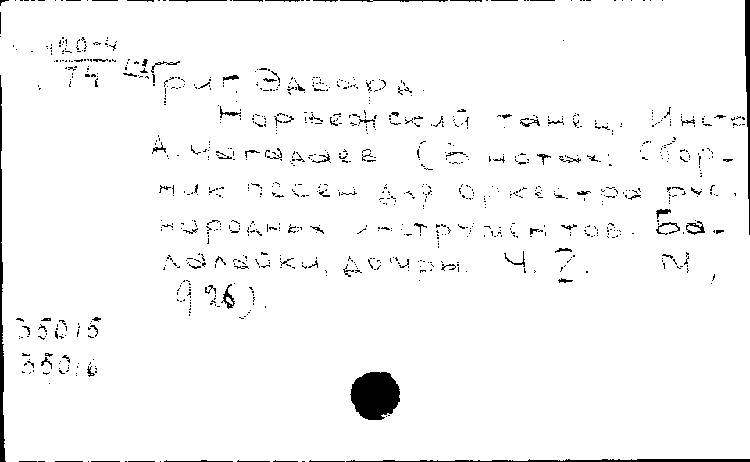 120-4
74
Григ, Эдвард.
Норвежский танец. Инстр
А. Чагадаев (В нотах: Сбор-
ник песен для оркестра рус.
народных инструментов. Ба-
лалайки, домры. Ч. 2. М,
926).
35015
35016